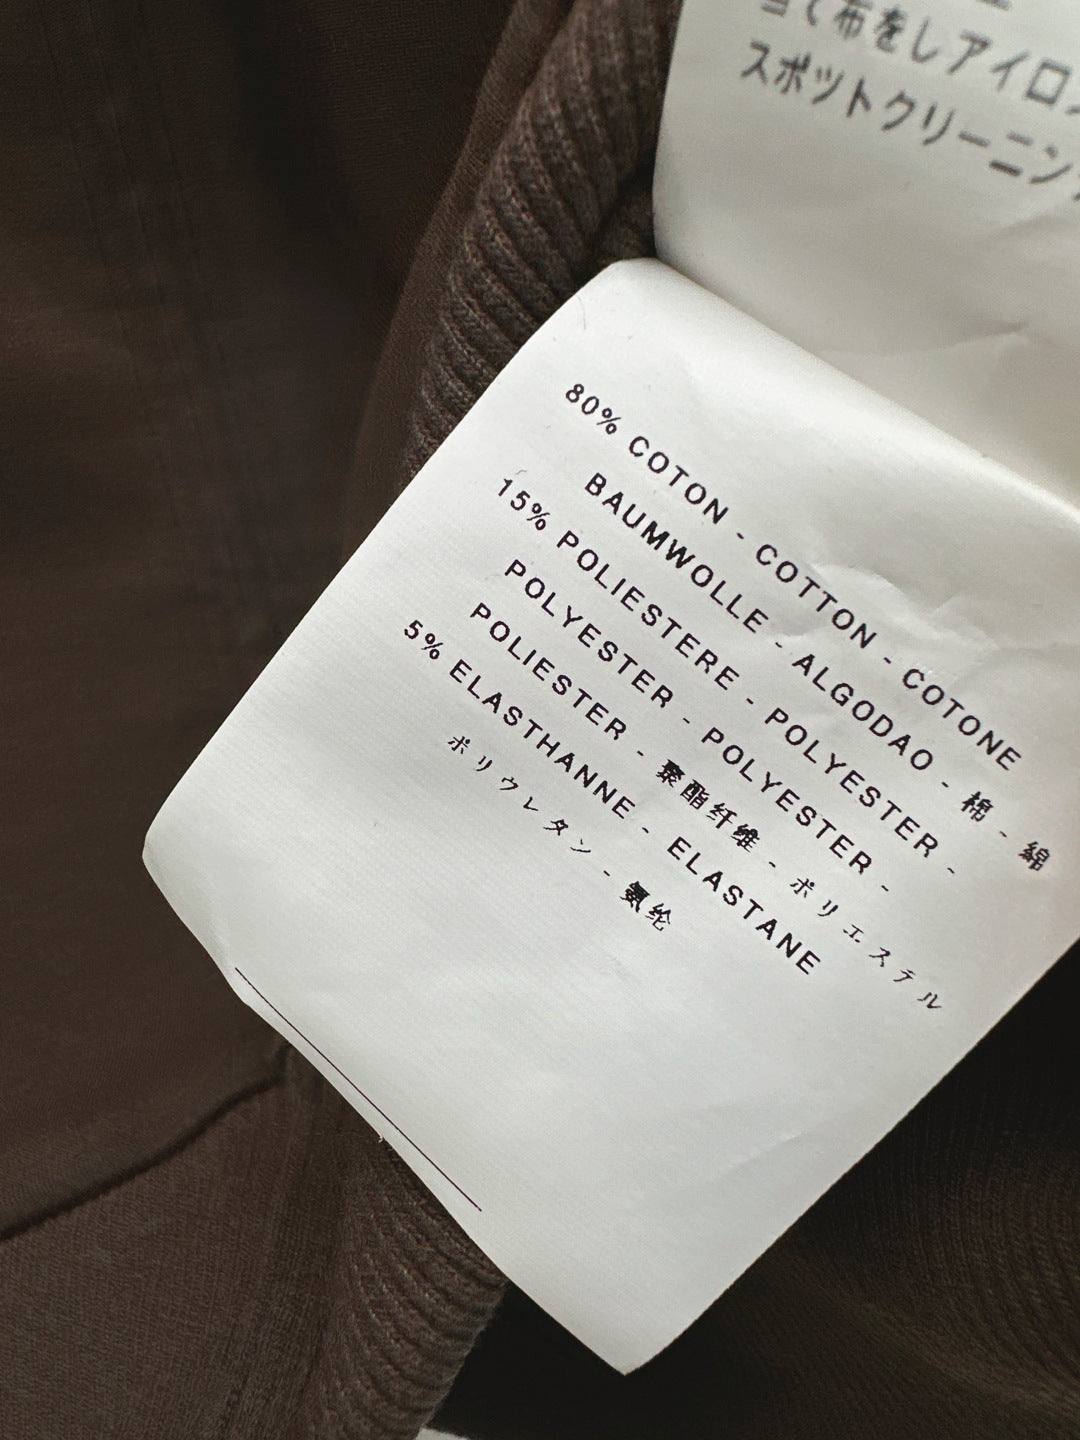 当て布をしアイロン
スポットクリーニング
80% COTON - COTTON - COTONE
BAUMWOLLE - ALGODAO - 棉 - 綿
15% POLIESTERE - POLYESTER -
POLYESTER - POLYESTER -
POLIESTER - 聚酯纤维 - ポリエステル
5% ELASTHANNE - ELASTANE
ポリウレタン - 氨纶